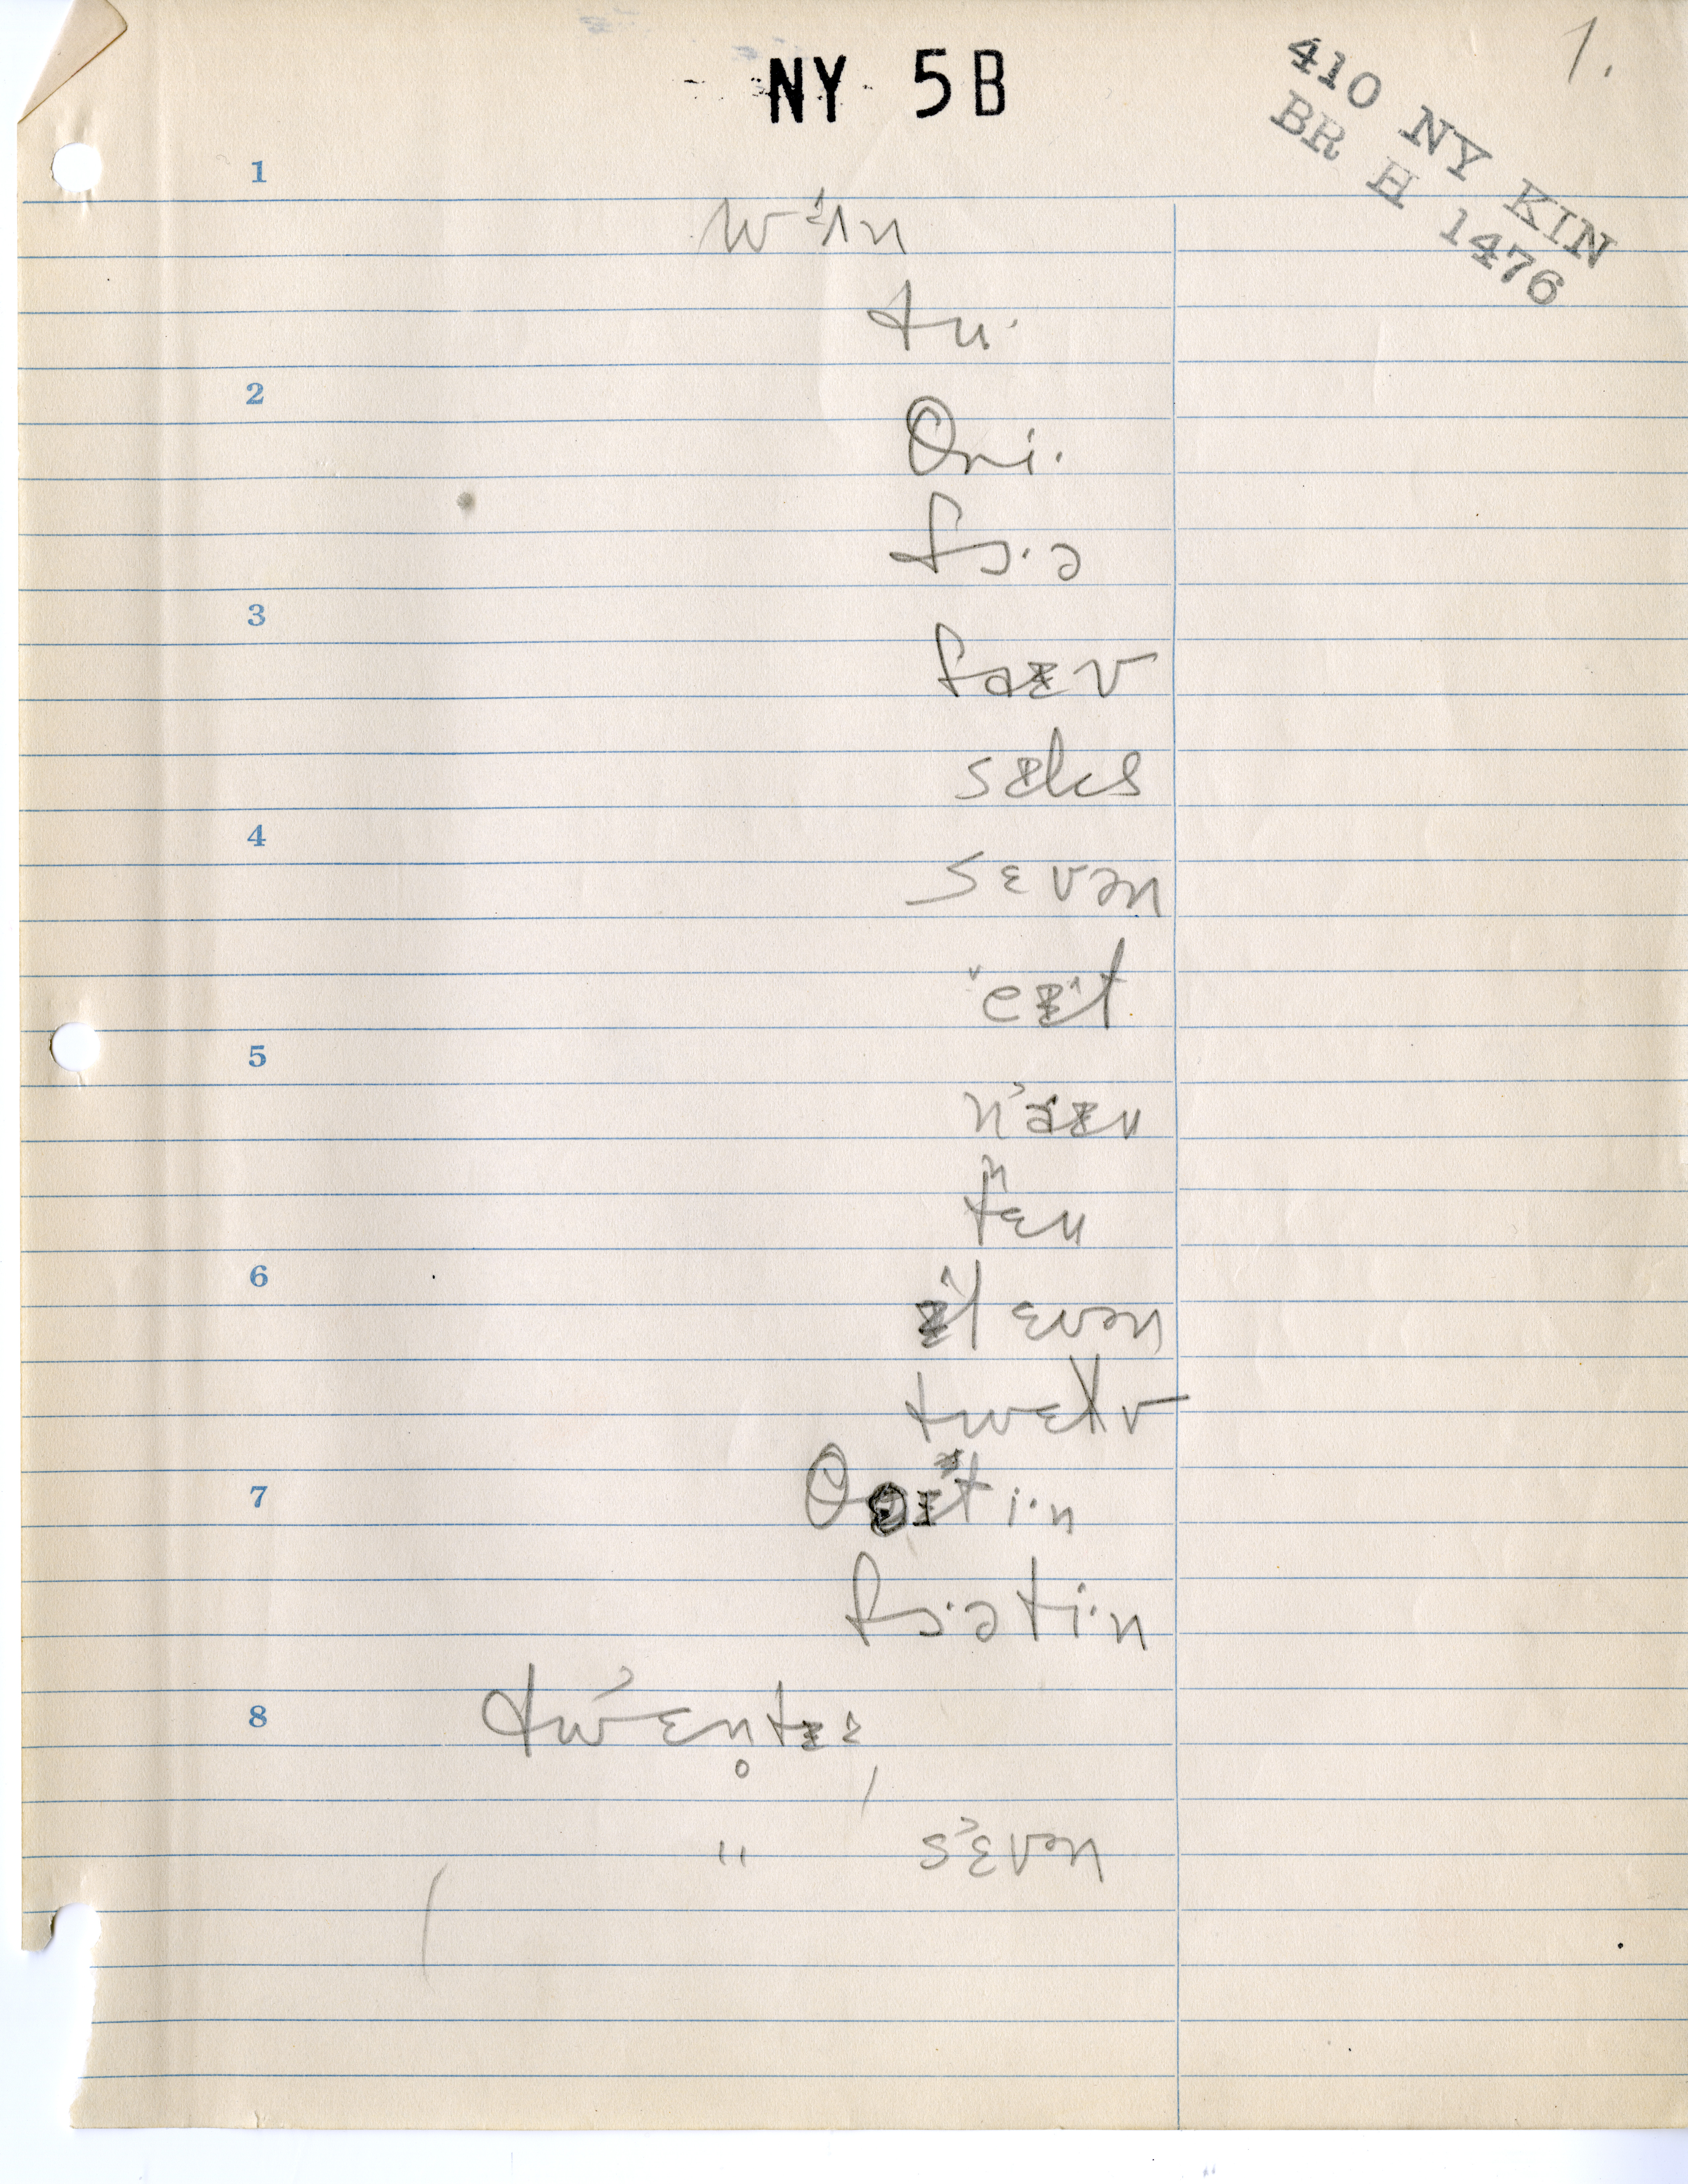 NY 5B
1.
410 NY KIN
BR H 1476
1
wʌn
tu·
2
θri·
fɔ·ə
3
faɪv
sɪks
4
sɛvən
eɪt
5
naɪn
tɛn
6
ɪlɛvən
twɛlv
7
fɔ·əti·n
8
twɛn̥tɪ
" sɛvən